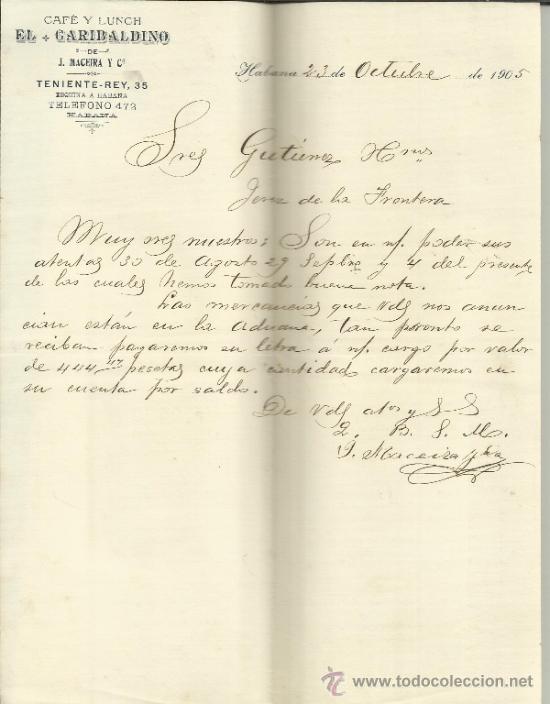 CAFÉ Y LUNCH
EL GARIBALDINO
DE
J. MACEIRA Y Cª
TENIENTE-REY, 35
ESQUINA A HABANA
TELEFONO 472
HABANA
Habana 23 de Octubre de 1905
Sres Gutiérrez Hnos
Jerez de la Frontera
Muy sres nuestros: Son en n/. poder sus
atentas 30 de Agosto 29 Sepbre y 4 del presente
de las cuales hemos tomado buena nota.
Las mercancias que Vds nos anun-
cian están en la Aduana, tan pronto se
reciban pagaremos su letra á n/. cargo por valor
de 444,47 pesetas cuya cantidad cargaremos en
su cuenta por saldo.
De Vds atos y S S
Q. B. S. M.
J. Maceira y Cia
todocoleccion
www.todocoleccion.net